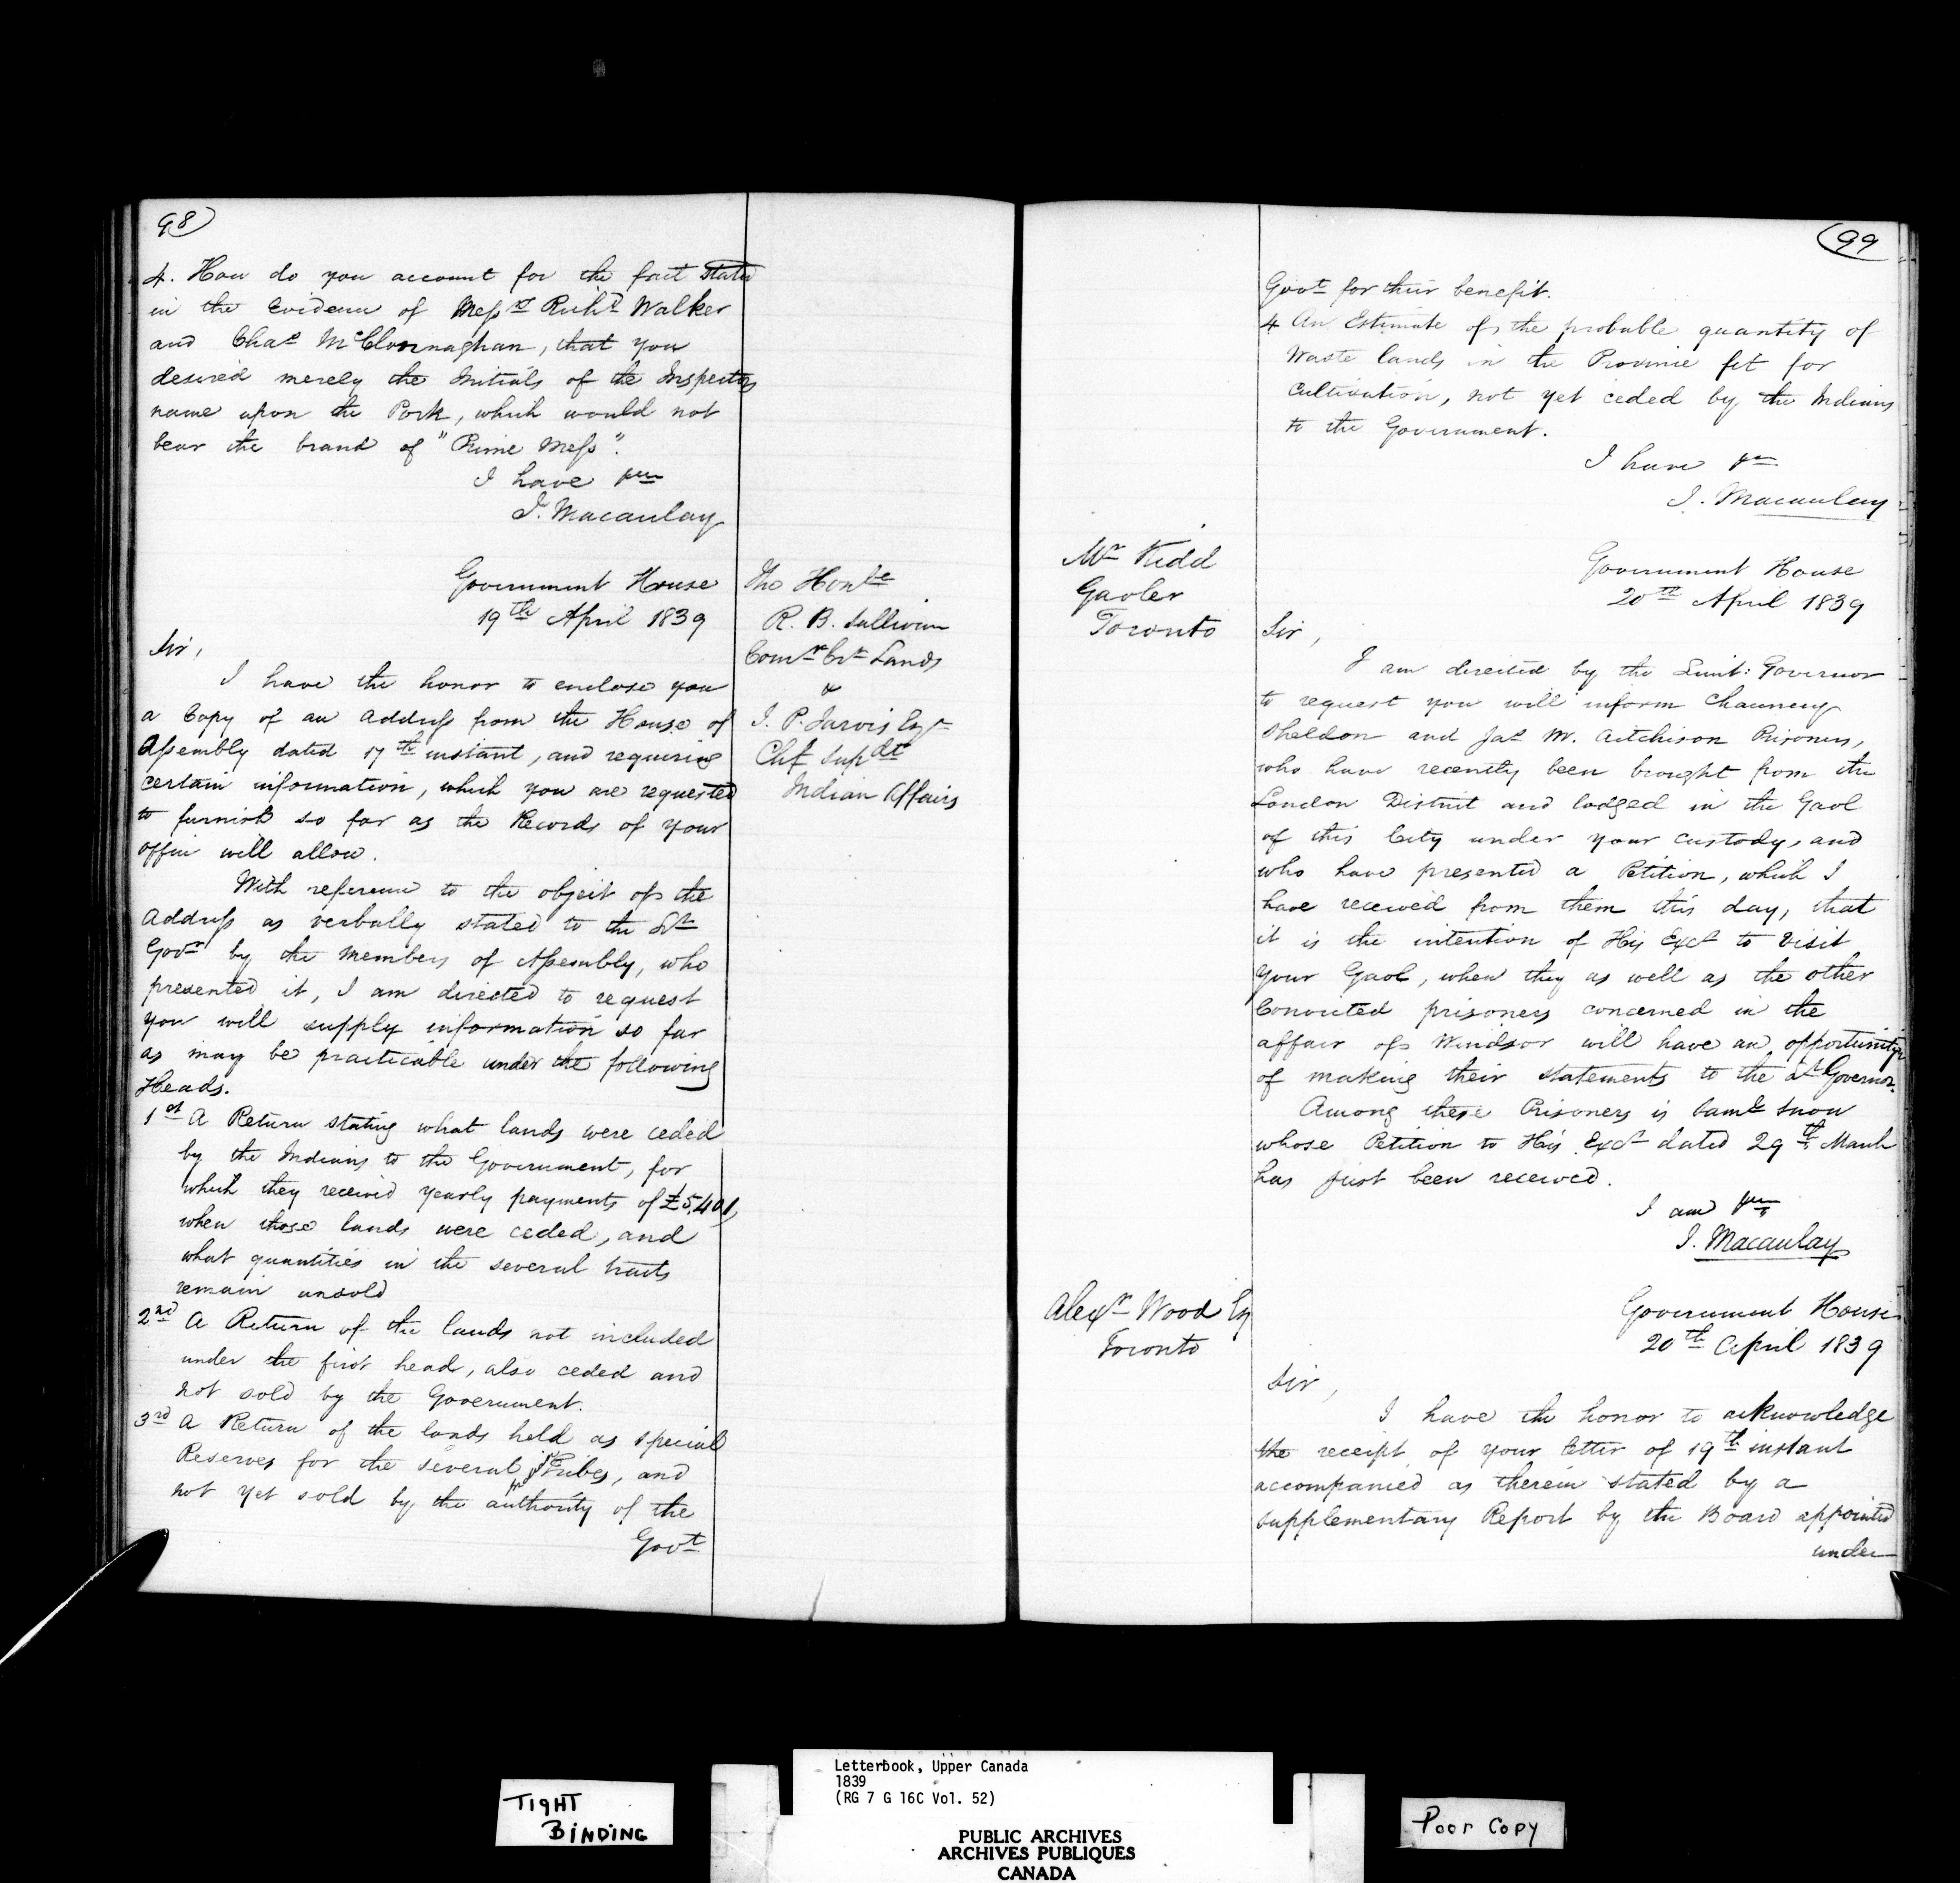 98
4. How do you account for the fact stated
in the Evidence of Messrs Richd Walker
and Chas McClonnaghan, that you
desired merely the Initials of the Inspectors
name upon the Pork, which would not
bear the brand of "Prime Mess".
I have &c
J. Macaulay
Government House
19th April 1839
The Honble
R. B. Sullivan
Comr Crn Lands
&
S. P. Jarvis Esqr
Chf Supdt
Indian Affairs
Sir,
I have the honor to enclose you
a Copy of an Address from the House of
Assembly dated 17th instant, and requiring
certain information, which you are requested
to furnish so far as the Records of your
office will allow.
With reference to the object of the
Address as verbally stated to the Lt
Govr by the Members of Assembly, who
presented it, I am directed to request
you will supply information so far
as may be practicable under the following
Heads.
1st A Return stating what lands were ceded
by the Indians to the Government, for
which they received yearly payments of £5,401,
when those lands were ceded, and
what quantities in the several tracts
remain unsold
2nd A Return of the lands not included
under the first head, also ceded and
not sold by the Government.
3rd A Return of the lands held as special
Reserves for the several Tribes, and
not yet sold by the authority of the
Govt
99
Govt for their benefit.
4 An Estimate of the probable quantity of
Waste lands in the Province fit for
Cultivation, not yet ceded by the Indians
to the Government.
I have &c
J. Macaulay
Mr Kidd
Gaoler
Toronto
Government House
20th April 1839
Sir,
I am directed by the Lieut: Governor
to request you will inform Chauncey
Sheldon and Jas M. Aitchison Prisoners,
who have recently been brought from the
London District and lodged in the Gaol
of this City under your custody, and
who have presented a Petition, which I
have received from them this day, that
it is the intention of His Excy to visit
your Gaol, when they as well as the other
Convicted prisoners concerned in the
affair of Windsor will have an opportunity
of making their statements to the Lt Governor.
Among these Prisoners is Saml Snow
whose Petition to His Excy dated 29th March
has just been received.
I am &c
J. Macaulay
Alexr Wood Esq
Toronto
Government House
20th April 1839
Sir,
I have the honor to acknowledge
the receipt of your letter of 19th instant
accompanied as therein stated by a
supplementary Report by the Board appointed
under
TIGHT
BINDING
Letterbook, Upper Canada
1839
(RG 7 G 16C Vol. 52)
PUBLIC ARCHIVES
ARCHIVES PUBLIQUES
CANADA
Poor Copy